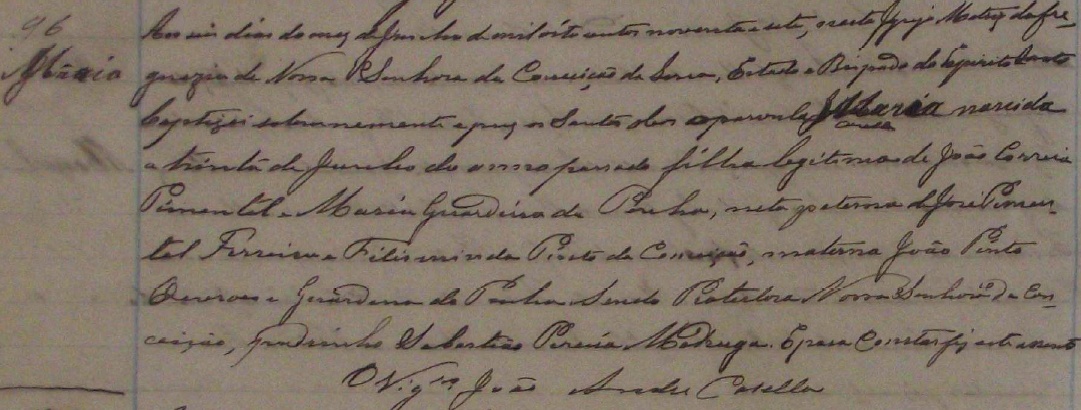 96
Maria
Aos seis dias do mez de Junho de mil oito centos noventa e sete, nesta Igreja Matriz da fre-
guezia de Nossa Senhora da Conceição da Serra, Estado e Bispado do Espirito Santo
baptizei solemnemente e puz os Santos oleos a parvula Maria nascida
a trinta de Junho do anno passado filha legitima de João Correia
Pimentel e Maria da Penha, neta paterna de José Pimen-
tel Ferreira e Pinto da Conceição, materna João Pinto
e da Penha. Sendo Protectora Nossa Senhora da Con-
ceição, padrinho Sebastião Pereira Madruga. E para constar fiz este assento
O Vigrº João André Casella